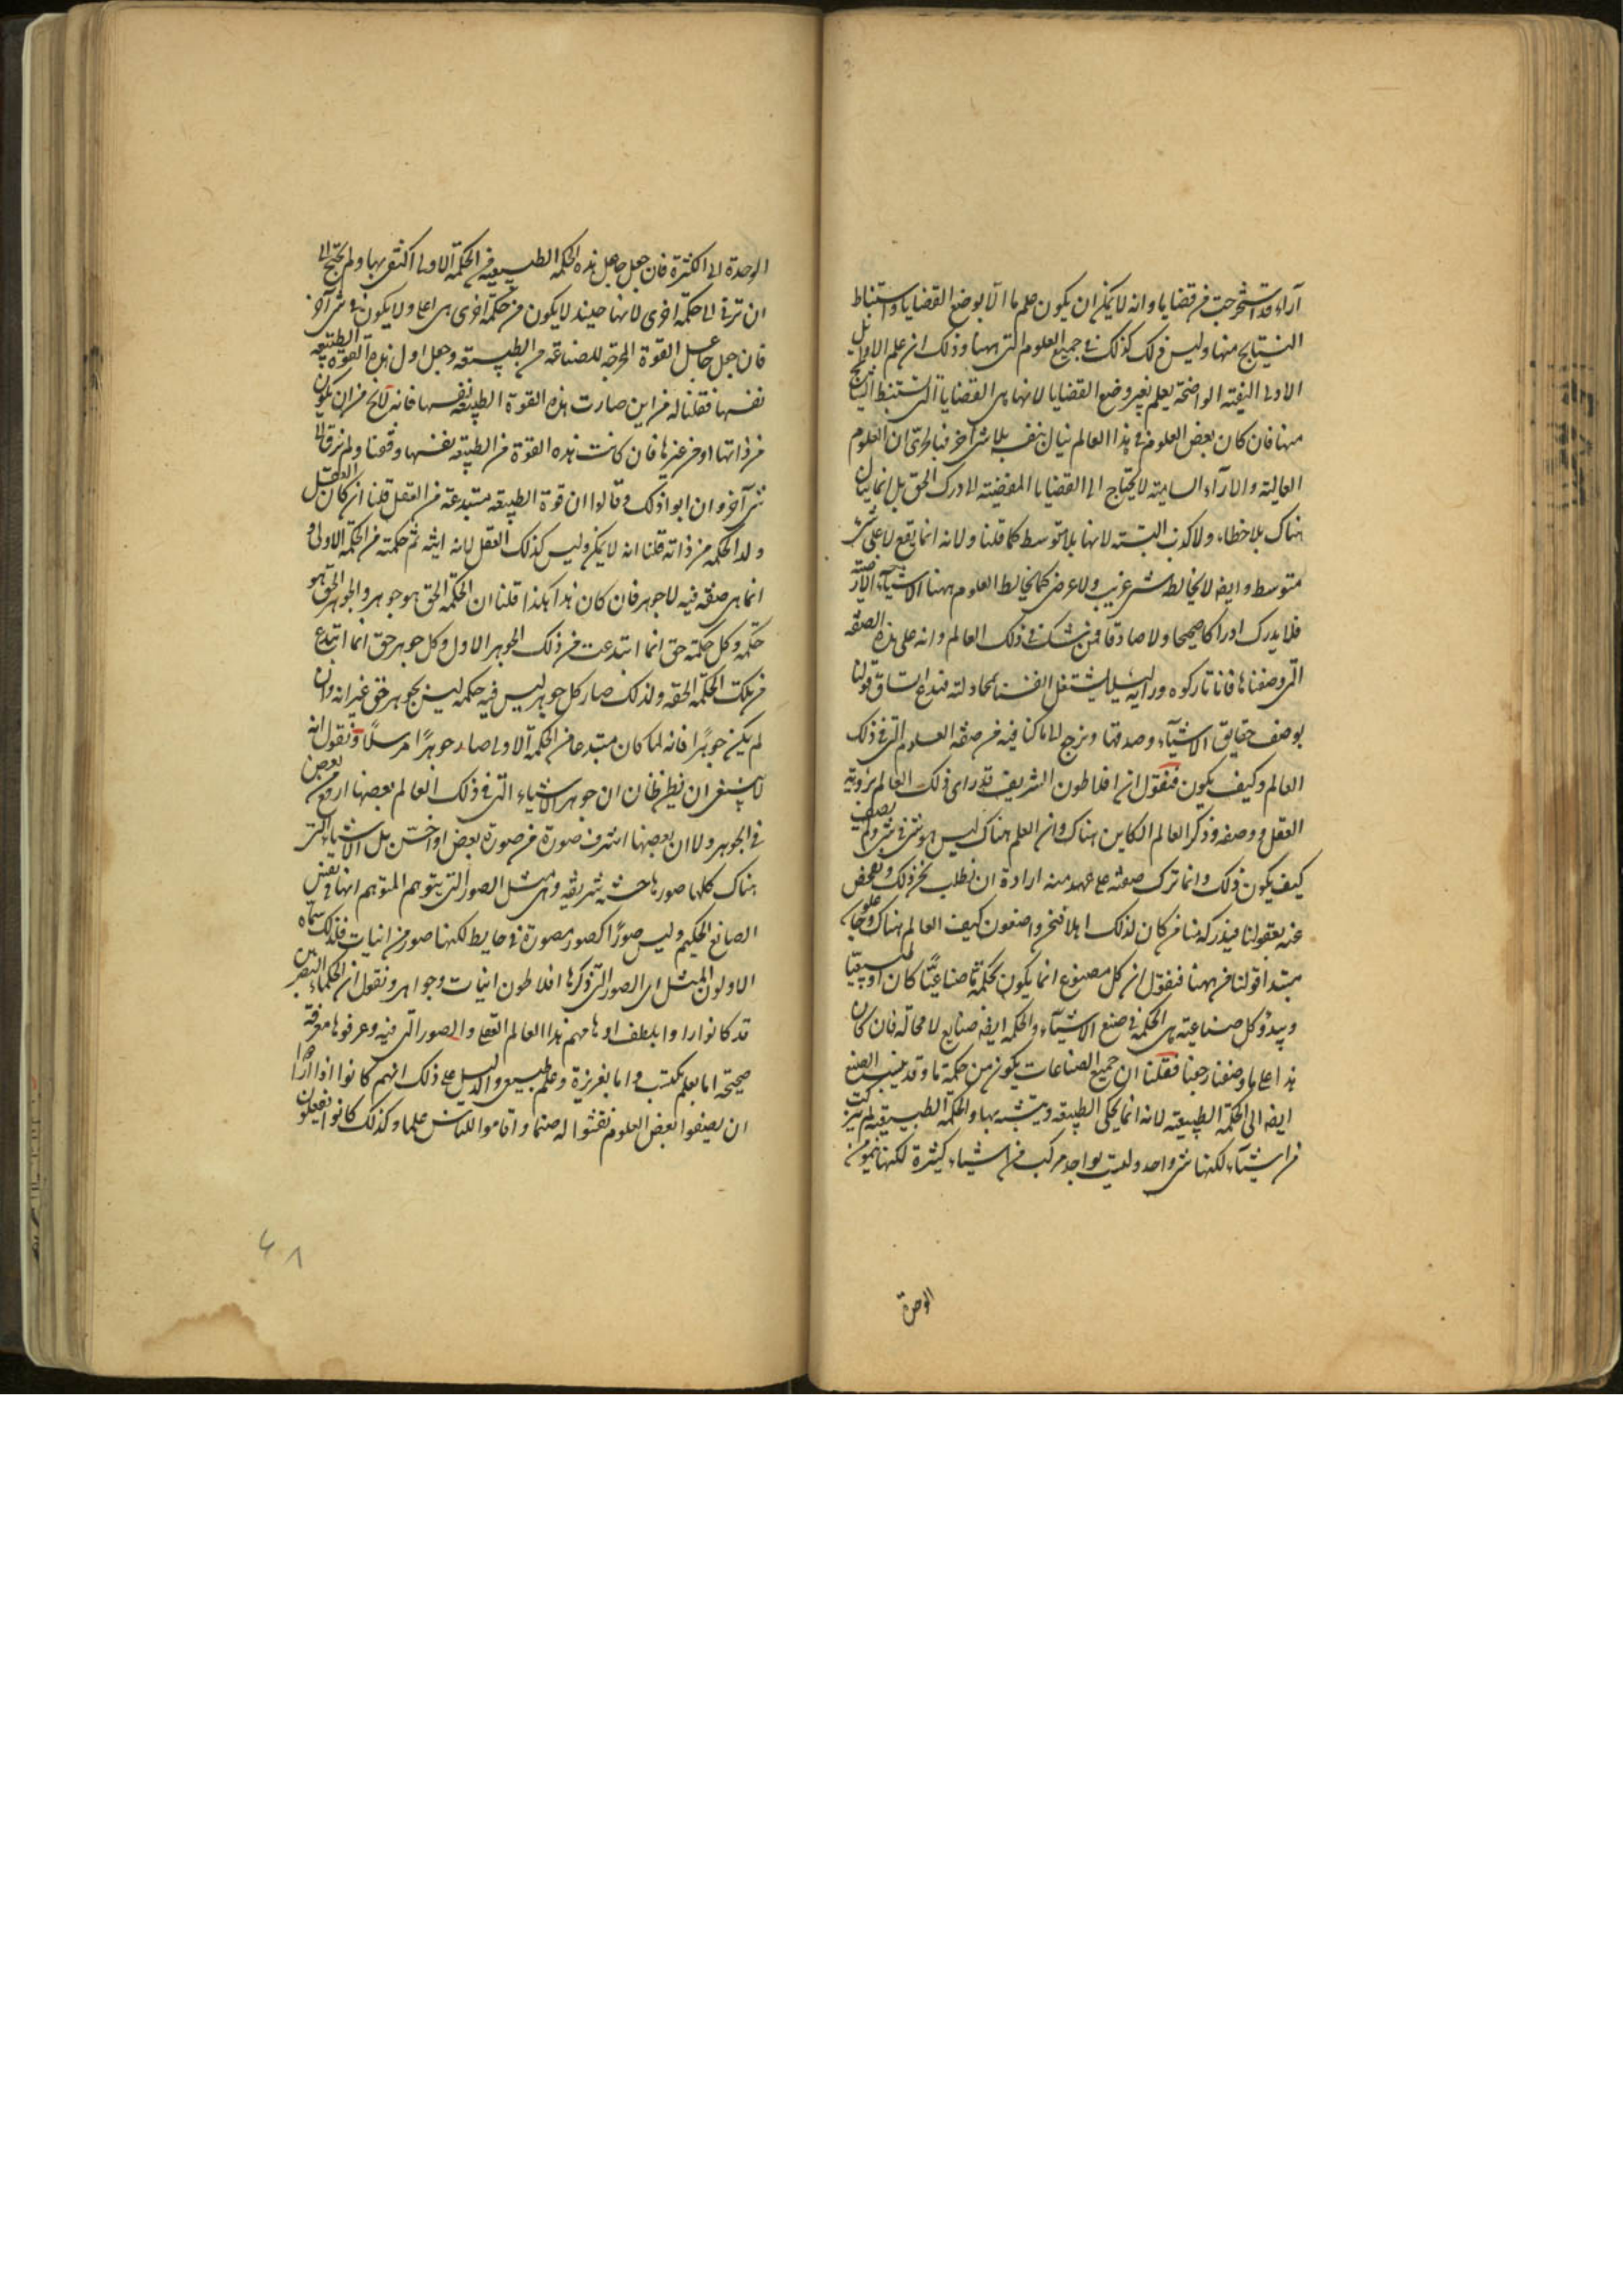 آراء قد استخرجت من قضايا وانه لا يمكن ان يكون علم ما الا بوضع القضايا واستنباط
النتايج منها وليس ذلك كذلك فى جميع العلوم التى ههنا وذلك ان علم الاوايل
الاولى البينة الواضحة يعلم بغير وضع القضايا لانها هى القضايا التى تستنبط النتايج
منها فان كان بعض العلوم فى هذا العالم ينال بنفسه بلا شئ آخر فبالحرى ان العلوم
العالية والآراء السامية لا يحتاج الى القضايا المفضية الى درك الحق بل انما ينال
هناك بلا خطاء ولا كذب البتة لانها بلا متوسط كما قلنا ولانه انما يقع لا على شئ
متوسط وايضا لا يخالطه شئ غريب ولا عرض كما يخالط العلوم ههنا الاشياء الارضية
فلا يدرك ادراكا صحيحا ولا صادقا فمن شك فى ذلك العالم وانه على هذه الصفة
التى وصفناها فانا تاركوه ورايه ليلا يشتغل انفسنا بمجادلته فندع اتساق قولنا
بوصف حقايق الاشياء وصدقها ونرجع الى ما كنا فيه من صفة العلوم التى فى ذلك
العالم وكيف يكون فنقول ان افلاطون الشريف قد راى ذلك العالم برؤية
العقل ووصفه وذكر العالم الكاين هناك وان العلم هناك ليس هو شئ فى شئ ولم يصف
كيف يكون ذلك وانما ترك صفته على عهد منه ارادة ان نطلب نحن ذلك ونفحص
عنه بعقولنا فيدركه منا من كان لذلك اهلا فنحن واصفون كيف العالم هناك وجاعلو
مبتدا قولنا من ههنا فنقول ان كل مصنوع انما يكون بحكمة ما صناعيا كان او طبيعيا
وبدؤ كل صناعة هى الحكمة فى صنع الاشياء والحكمة ايضا صنايع لا محالة فان كان
هذا على ما وصفنا رجعنا فقلنا ان جميع الصناعات يكون من حكمة ما وقد ينسب الصنع
ايضا الى الحكمة الطبيعية لانه انما يحكى الطبيعة ويتشبه بها والحكمة الطبيعية لم تتركب
من اشياء لكنها شئ واحد وليست بواحد مركب من اشياء كثيرة لكنها تنمو من
الوحدة
الوحدة الى الكثرة فان جعل جاعل هذه الحكمة الطبيعية من الحكمة الاولى اكتفى بها ولم يحتج الى
ان ترقى الى حكمة اخرى لانها حينئذ لا يكون من حكمة اخرى هى اعلى ولا يكون فى شئ آخر
فان جعل جاعل القوة المخرجة للصناعة من الطبيعة وجعل اول هذه القوة الطبيعة
نفسها فقلنا له من اين صارت هذه القوة الطبيعة نفسها فانه لا يخ من ان يكون
من ذاتها او من غيرها فان كانت هذه القوة من الطبيعة نفسها وقفنا ولم نرق الى
شئ آخر وان ابوا ذلك وقالوا ان قوة الطبيعة مبتدعة من العقل قلنا ان كان العقل
ولد الحكمة من ذاته قلنا انه لا يمكن وليس كذلك العقل لانه انية ثم حكمته من الحكمة الاولى و
انما هى صفة فيه لا جوهر فان كان هذا هكذا قلنا ان الحكمة الحق هو جوهر والجوهر الحق هو
حكمة وكل حكمة حق انما ابتدعت من ذلك الجوهر الاول وكل جوهر حق انما ابتدع
من تلك الحكمة الحقة ولذلك صار كل جوهر ليس فيه حكمة ليس بجوهر حق غير انه وان
لم يكن جوهرا فانه لما كان مبتدعا من الحكمة الاولى صار جوهرا مرسلا ونقول انه
لا ينبغى ان يظن ظان ان جوهر الاشياء التى فى ذلك العالم بعضها ارفع من بعض
فى الجوهر ولا ان بعضها اشرف صورة من صورة بعض او اخس بل الاشياء التى
هناك كلها صورها حسنة شريفة وهى مثل الصور التى يتوهم المتوهم انها فى نفس
الصانع الحكيم وليس صورا كصور مصورة فى حايط لكنها صور من انيات فلذلك سماه
الاولون المثل اى الصور التى ذكرها افلاطون انيات وجواهر ونقول ان الحكماء المصريين
قد كانوا راوا بلطف اوهامهم هذا العالم العقلى والصور التى فيه وعرفوها معرفة
صحيحة اما بعلم مكتسب واما بغريزة وعلم طبيعى والدليل على ذلك انهم كانوا اذا ارادوا
ان يصفوا بعض العلوم نقشوا له صنما واقاموا للناس علما وكذلك كانوا يفعلون
٤٨